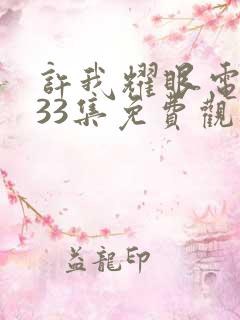 許我耀眼電
33集免費觀
益龍印